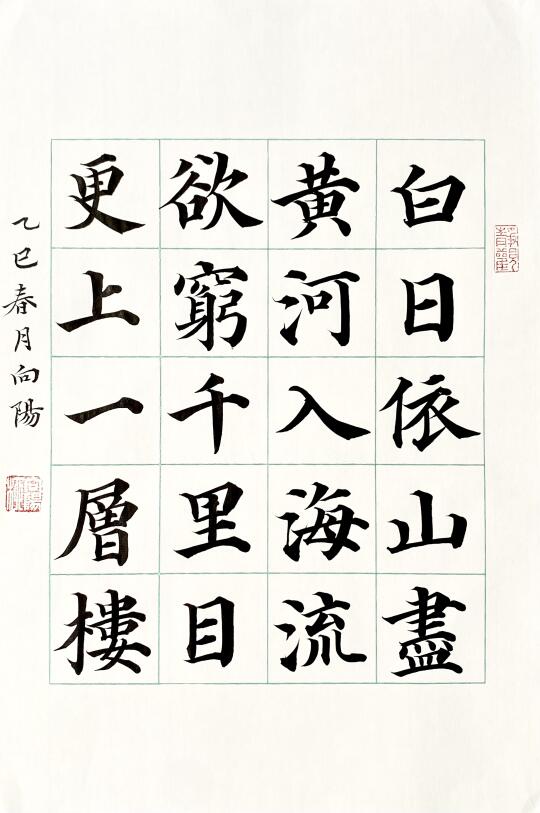 白日依山盡
黃河入海流
欲窮千里目
更上一層樓
乙巳春月向陽